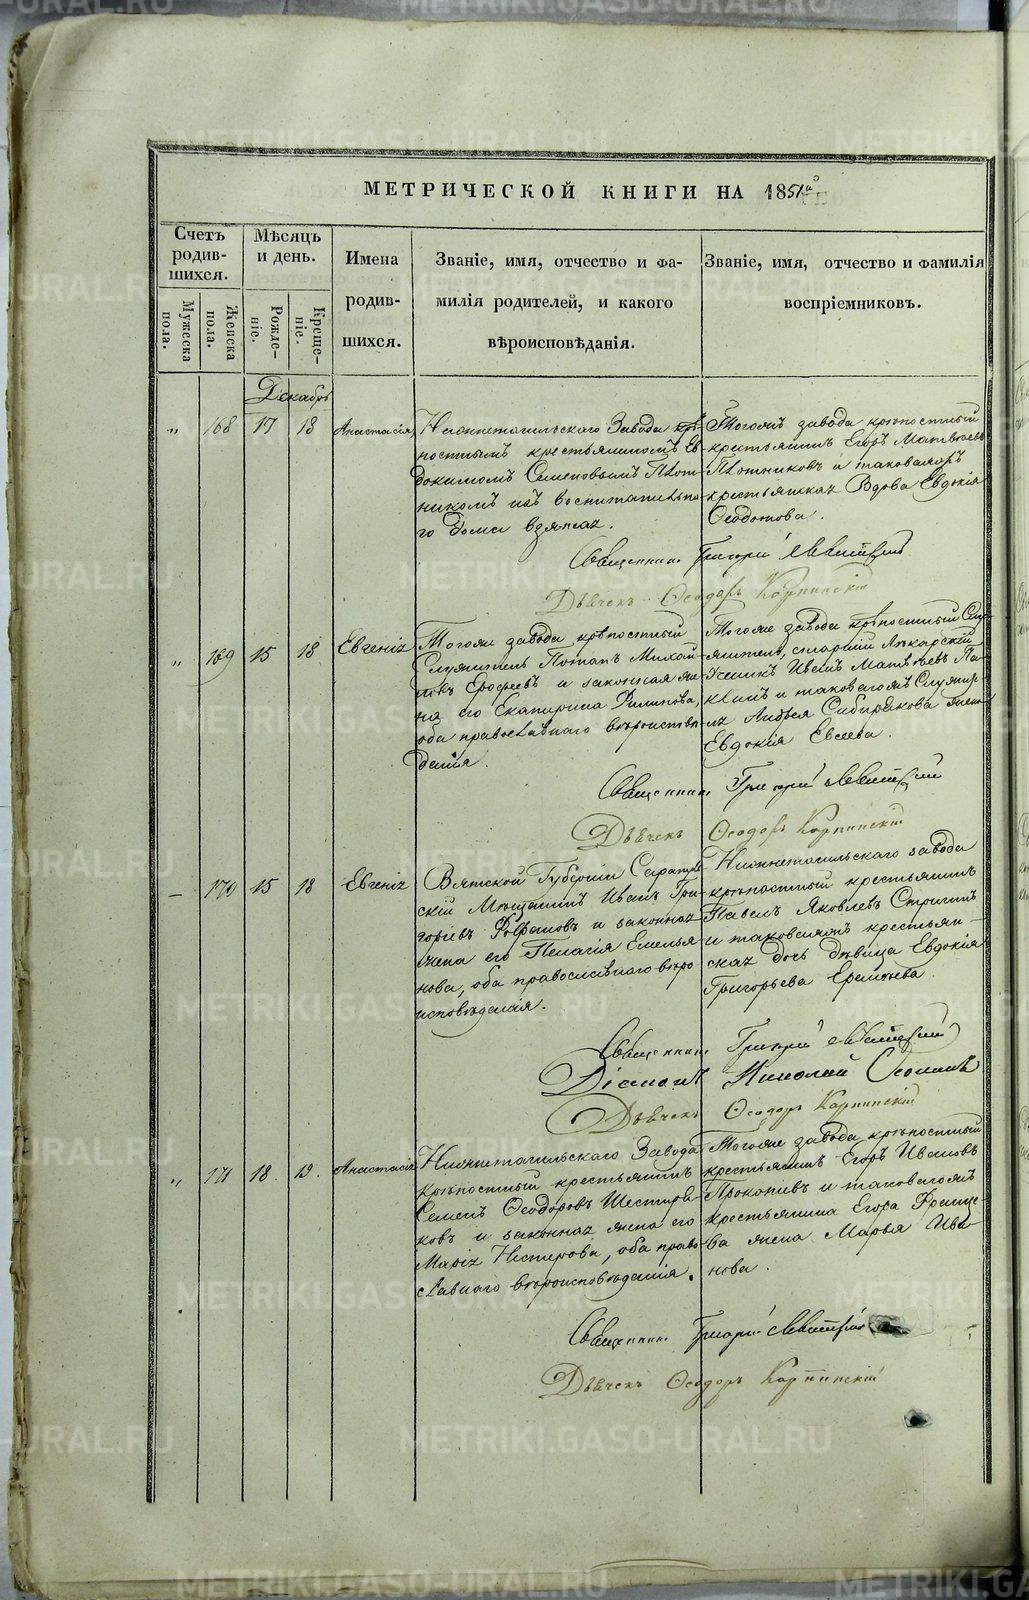 METRIKI.GASO-URAL.RU
МЕТРИЧЕСКОЙ КНИГИ НА 1851й
Счетъ родив-шихся.
Мужеска пола.
Женска пола.
Мѣсяцъ и день.
Рожде-ніе.
Креще-ніе.
Имена
родив-
шихся.
Званіе, имя, отчество и фа-
милія родителей, и какого
вѣроисповѣданія.
Званіе, имя, отчество и фамилія
воспріемниковъ.
Декабрь
" 168 17 18 Анастасія
Нижнетагильскаго Завода крѣ-
постнымъ крестьяниномъ Ев-
докимомъ Семеновымъ Плот-
никомъ изъ воспитательна-
го дома взятая.
Тогожъ завода крѣпостный
крестьянинъ Егоръ Матвѣевъ
Плотниковъ и таковаяжъ
крестьянская Вдова Евдокія
Ѳедотова.
Священникъ Григорій Левитскій
Дьячекъ Ѳеодоръ Карпинскій
" 169 15 18 Евгенія
Тогоже завода крѣпостный
Служитель Потапъ Михай-
ловъ Ерофеевъ и законная же-
на его Екатерина Филипова,
оба православнаго вѣроисповѣ-
данія.
Тогоже завода крѣпостный Слу-
житель, старшій Лекарскій
Ученикъ Иванъ Матвѣевъ Па-
и таковагожъ Служите-
ля Андрея Сибирякова жена
Евдокія Евсеева.
Священникъ Григорій Левитскій
Дьячекъ Ѳеодоръ Карпинскій
– 170 15 18 Евгенія
Вятской Губерніи Сарапуль-
скій Мещанинъ Иванъ Гри-
горьевъ и законная
жена его Пелагія Емелья-
нова, оба православнаго вѣро
исповѣданія.
Нижнетагильскаго завода
крѣпостный крестьянинъ
Павелъ Яковлевъ Стригинъ
и таковаяжъ крестьян-
ская дочь дѣвица Евдокія
Григорьева
Священникъ Григорій Левитскій
Діаконъ Николай Осоминъ
Дьячекъ Ѳеодоръ Карпинскій
" 171 18 19. Анастасія
Нижнетагильскаго Завода
крѣпостный крестьянинъ
Семенъ Ѳеодоровъ Шестери-
ковъ и законная жена его
Марія Нестерова, оба право-
славнаго вѣроисповѣданія.
Тогоже завода крѣпостный
крестьянинъ Егоръ Ивановъ
Прокопьевъ и таковагожъ
крестьянина Егора
жена Марья Ива
нова.
Священникъ Григорій Левитскій
Дьячекъ Ѳеодоръ Карпинскій